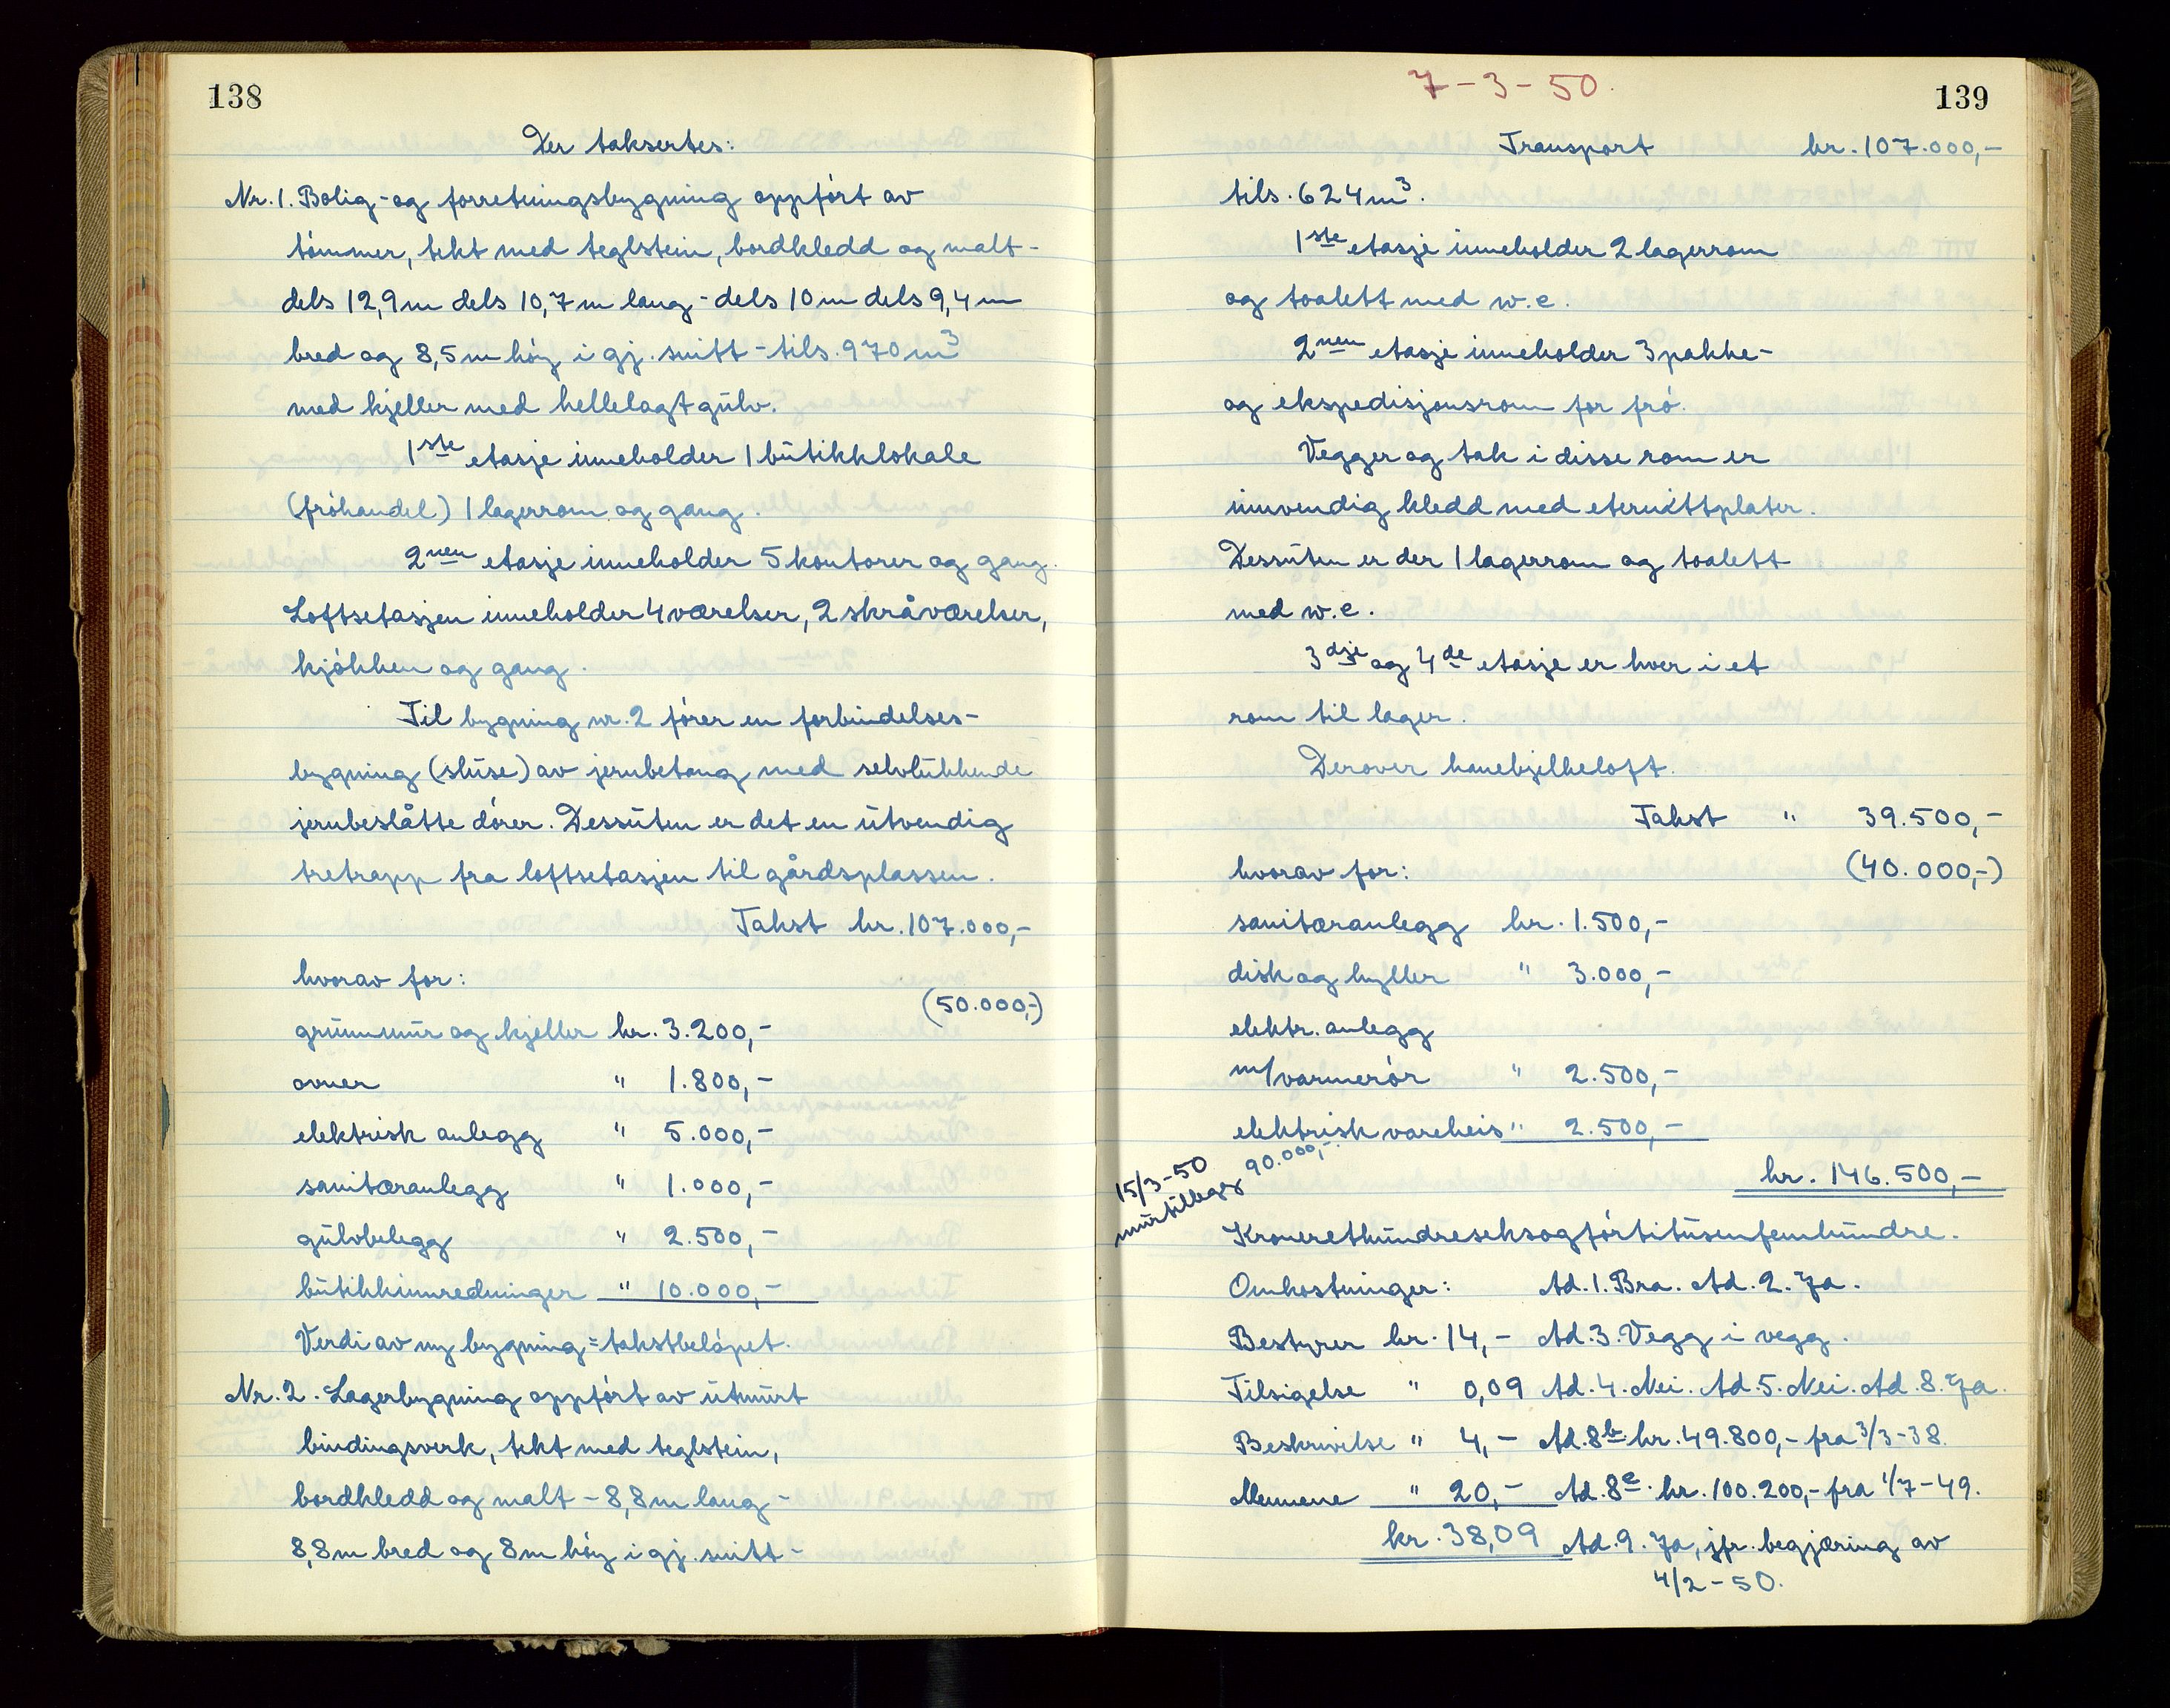 138
Der taksertes:
Nr. 1. Bolig- og forretningsbygning oppført av
tömmer, tekt med teglstein, bordkledd og malt -
dels 12,9 m dels 10,7 m lang - dels 10 m dels 9,4 m
bred og 8,5 m høy i gj. snitt - tils. 970 m³
med kjeller med hellelagt gulv.
1ste etasje inneholder 1 butikklokale
(fröhandel) 1 lagerrom og gang.
2nen etasje inneholder 5 kontorer og gang.
Loftsetasjen inneholder 4 værelser, 2 skråværelser,
kjökken og gang.
Til bygning nr. 2 förer en forbindelses-
bygning (sluse) av jernbetong med selvlukkende
jernbeslåtte dörer. Dessuten er det en utvendig
tretrapp fra loftsetasjen til gårdsplassen.
Takst kr. 107.000,-
hvorav for:
(50.000,-)
grunnmur og kjeller kr. 3.200,-
ovner " 1.800,-
elektrisk anlegg " 5.000,-
sanitæranlegg " 1.000,-
gulvbelegg " 2.500,-
butikkinnredninger " 10.000,-
Verdi av ny bygning = takstbelöpet.
Nr. 2. Lagerbygning oppfört av utmurt
bindingsverk, tekt med teglstein,
bordkledd og malt - 8,8 m lang -
8,8 m bred og 8 m höy i gj. snitt -
7-3-50.
139
Transport kr. 107.000,-
tils. 624 m³.
1ste etasje inneholder 2 lagerrom
og toalett med w.c.
2nen etasje inneholder 3 pakke-
og ekspedisjonsrom for frö.
Vegger og tak i disse rom er
innvendig kledd med eternittplater.
Dessuten er der 1 lagerrom og toalett
med w.c.
3dje og 4de etasje er hver i et
rom til lager.
Derover hanebjelkeloft.
Takst " 39.500,-
hvorav for: (40.000,-)
sanitæranlegg kr. 1.500,-
disk og hyller " 3.000,-
elektr. anlegg
m/varmerör " 2.500,-
elektrisk vareheis " 2.500,-
15/3-50 90.000,-
murtillegg
kr. 146.500,-
Kronerethundreseksogførtitusenfemhundre.
Omkostninger: Ad. 1. Bra. Ad. 2. Ja.
Bestyrer kr. 14,- Ad. 3. Vegg i vegg.
Tilsigelse " 0,09 Ad. 4. Nei. Ad. 5. Nei. Ad. 8. Ja.
Beskrivelse " 4,- Ad. 8b kr. 49.800,- fra 3/3-38.
Mennene " 20,- Ad. 8c. kr. 100.200,- fra 1/7-49.
kr. 38,09 Ad. 9. Ja, jfr. begjæring av
4/2-50.